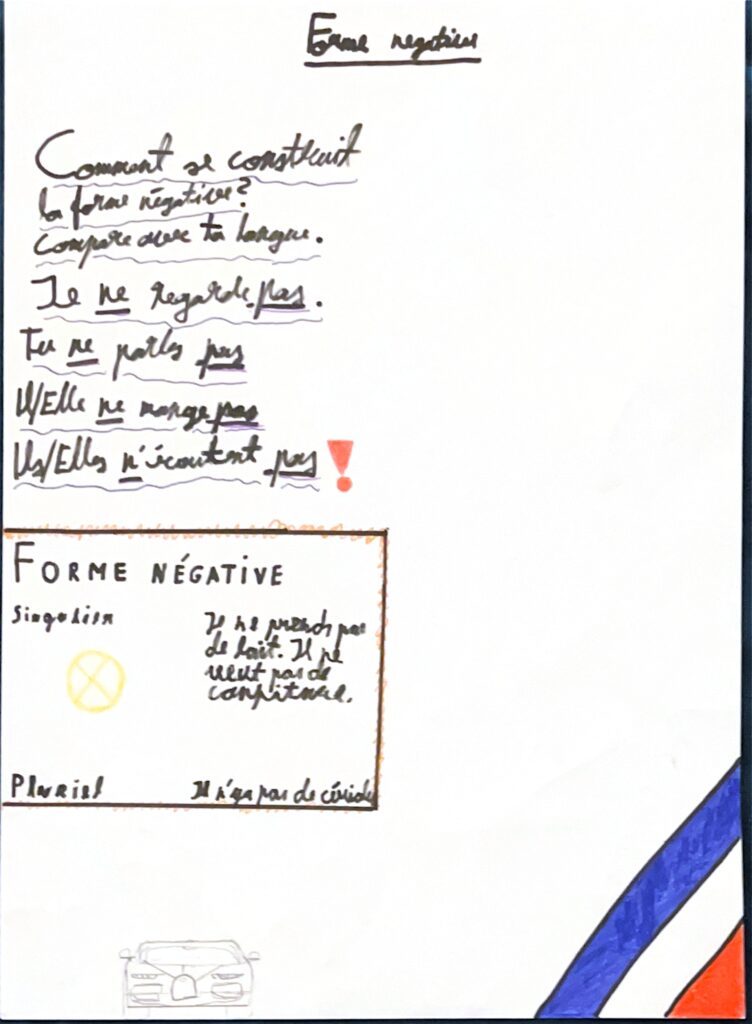 Forme negative
Comment se construit
la forme négative?
Compare avec ta langue.
Je ne regarde pas.
Tu ne parles pas
Il/Elle ne mange pas
Ils/Elles n'écoutent pas !
FORME NÉGATIVE
Singulier
Je ne prends pas
de lait. Il ne
veut pas de
Pluriel
Il n'ya pas de